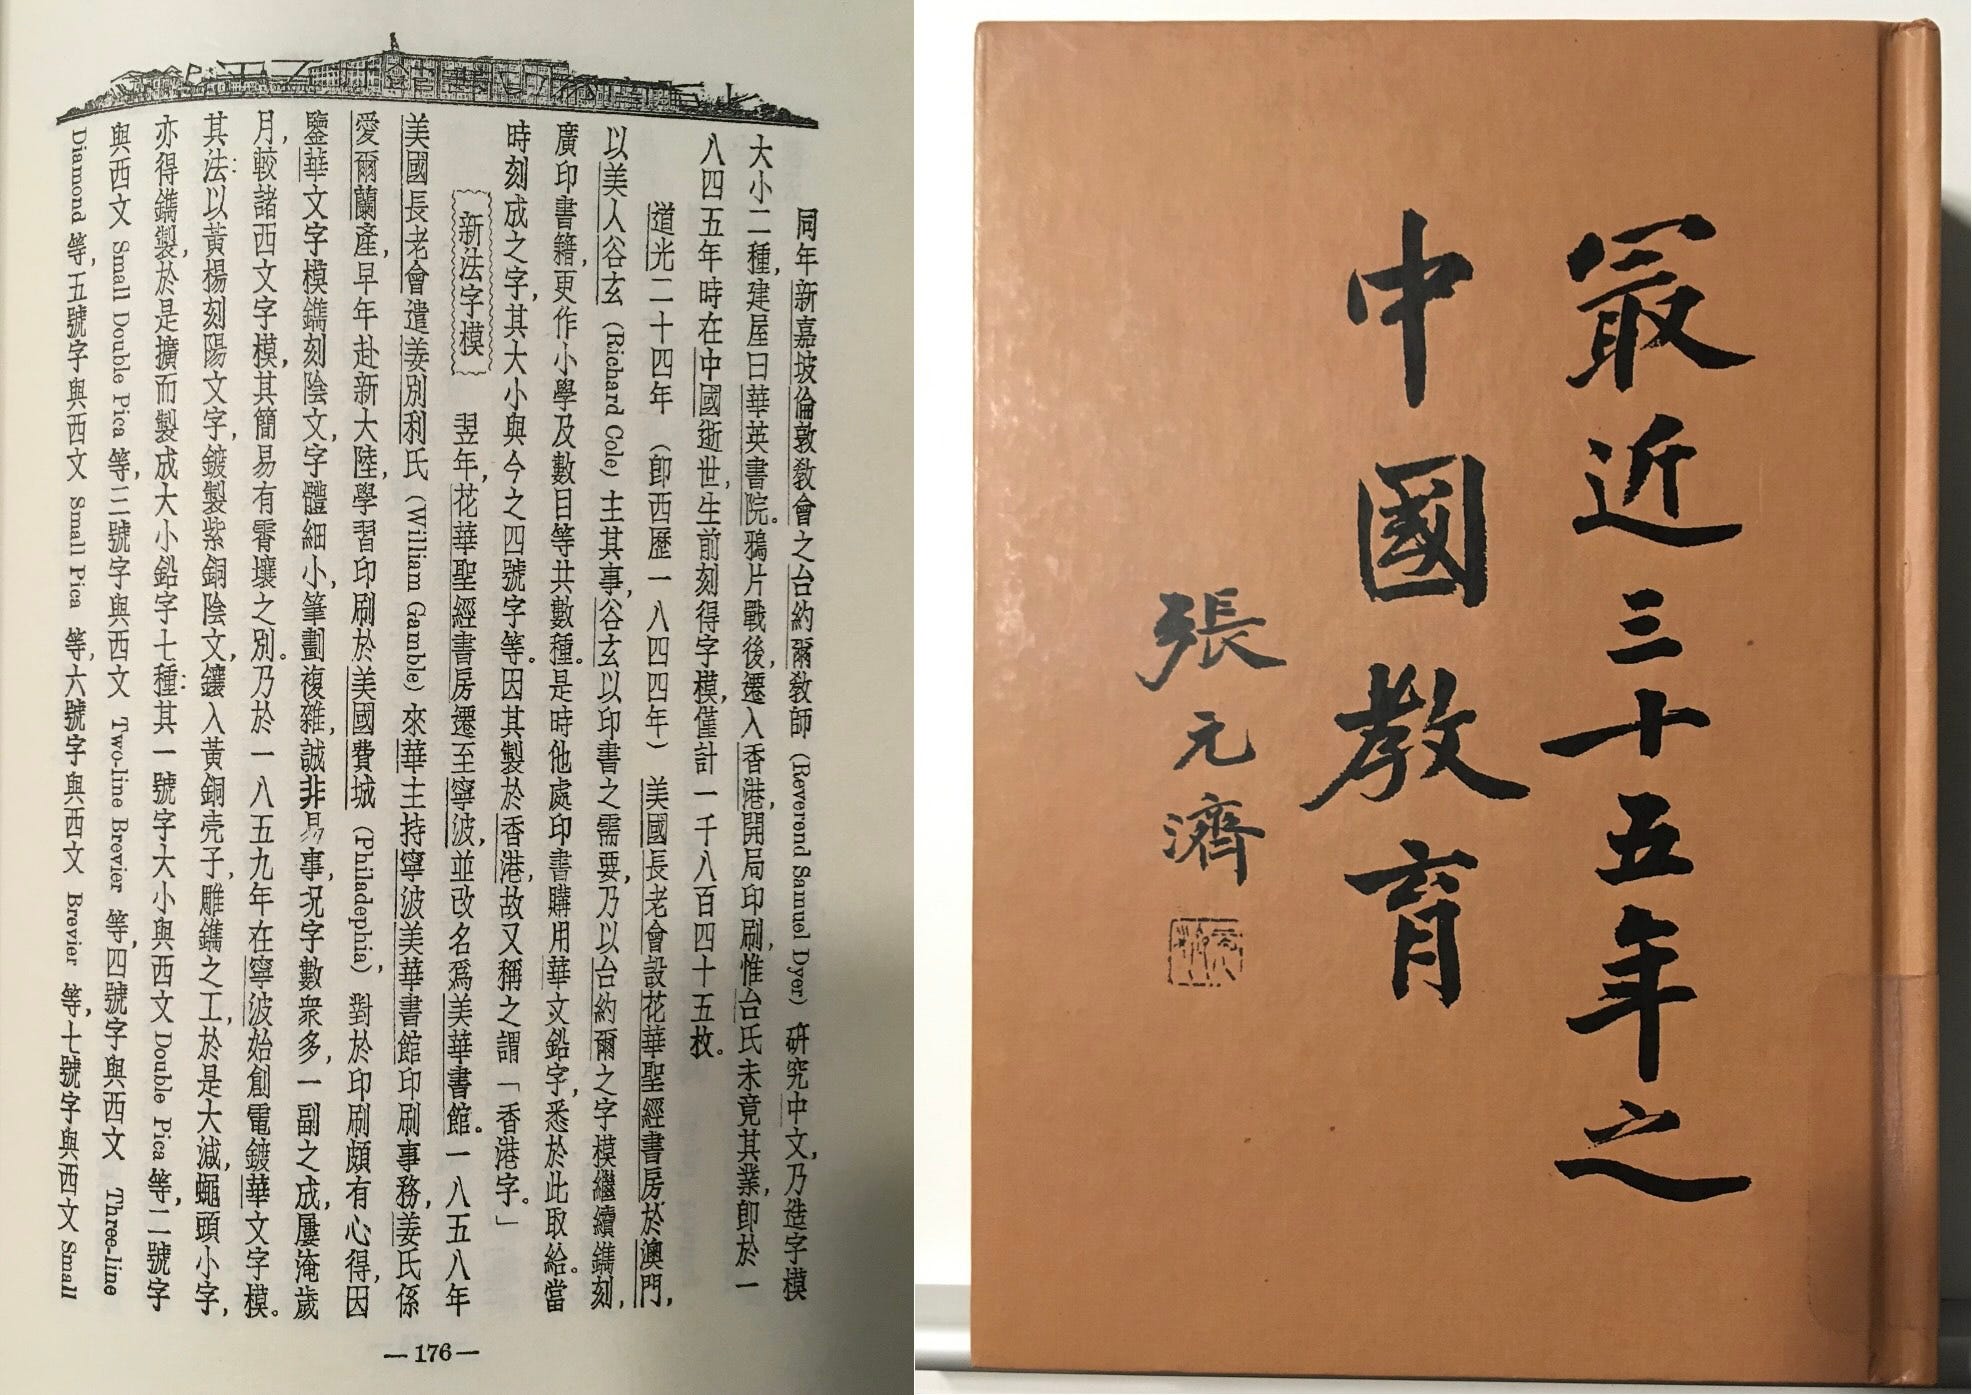 同年新嘉坡倫敦敎會之台約爾敎師(Reverend Samuel Dyer)研究中文,乃造字模
大小二種,建屋曰華英書院。鴉片戰後,遷入香港,開局印刷,惟台氏未竟其業,卽於一
八四五年時在中國逝世,生前刻得字模,僅計一千八百四十五枚。
道光二十四年(卽西歷一八四四年)美國長老會設花華聖經書房於澳門,
以美人谷玄(Richard Cole)主其事,谷玄以印書之需要,乃以台約爾之字模繼續鐫刻,
廣印書籍,更作小學及數目等共數種。是時他處印書購用華文鉛字,悉於此取給。當
時刻成之字,其大小與今之四號字等。因其製於香港,故又稱之謂「香港字。」
新法字模 翌年,花華聖經書房遷至寧波,並改名爲美華書館。一八五八年
美國長老會遣姜別利氏(William Gamble)來華主持寧波美華書館印刷事務,姜氏係
愛爾蘭產,早年赴新大陸,學習印刷於美國費城(Philadephia),對於印刷頗有心得,因
鑒華文字模鐫刻陰文,字體細小,筆劃複雜,誠非易事,况字數衆多,一副之成,屢淹歲
月,較諸西文字模,其簡易有霄壤之別。乃於一八五九年在寧波始創電鍍華文字模。
其法:以黃楊刻陽文字,鍍製紫銅陰文,鑲入黃銅壳子,雕鐫之工,於是大減,蠅頭小字,
亦得鐫製,於是擴而製成大小鉛字七種:其一號字大小與西文 Double Pica 等,二號字
與西文 Small Double Pica 等,三號字與西文 Two-line Brevier 等,四號字與西文 Three-line
Diamond 等,五號字與西文 Small Pica 等,六號字與西文 Brevier 等,七號字與西文 Small
—176—
最近三十五年之
中國教育
張元濟